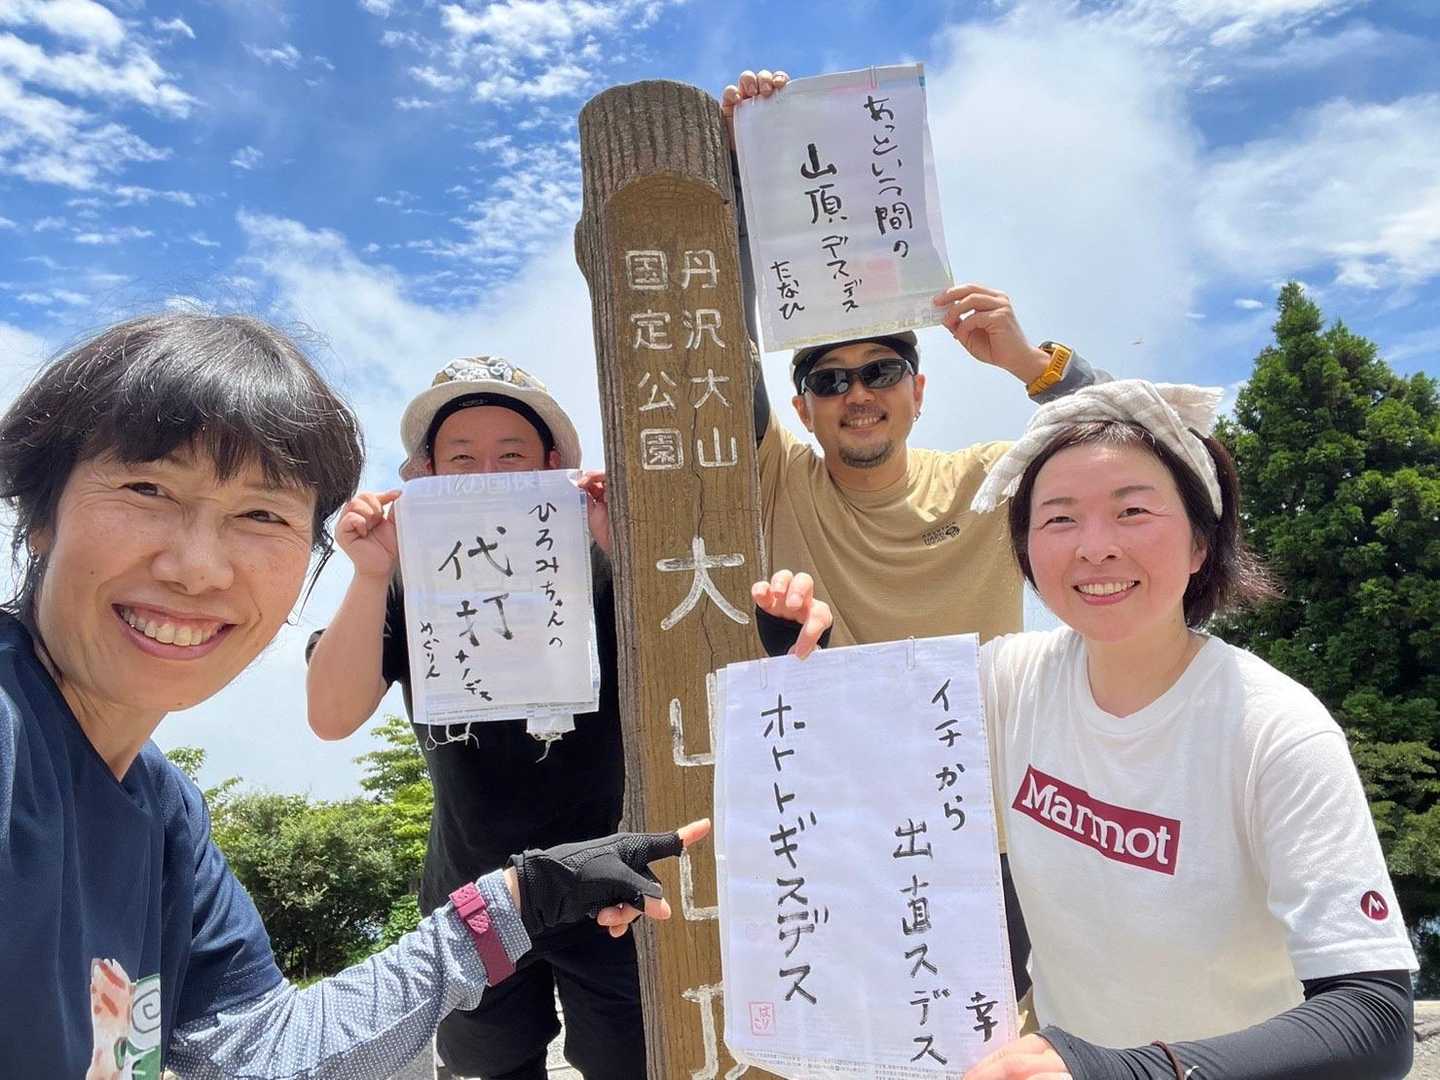 あっという間の
山頂デスデス
たなひ
丹沢大山
国定公園
大山頂
ひろみちゃんの
代打サノデス
めぐりん
イチから
出直スデス
幸
ホトトギスデス
Marmot